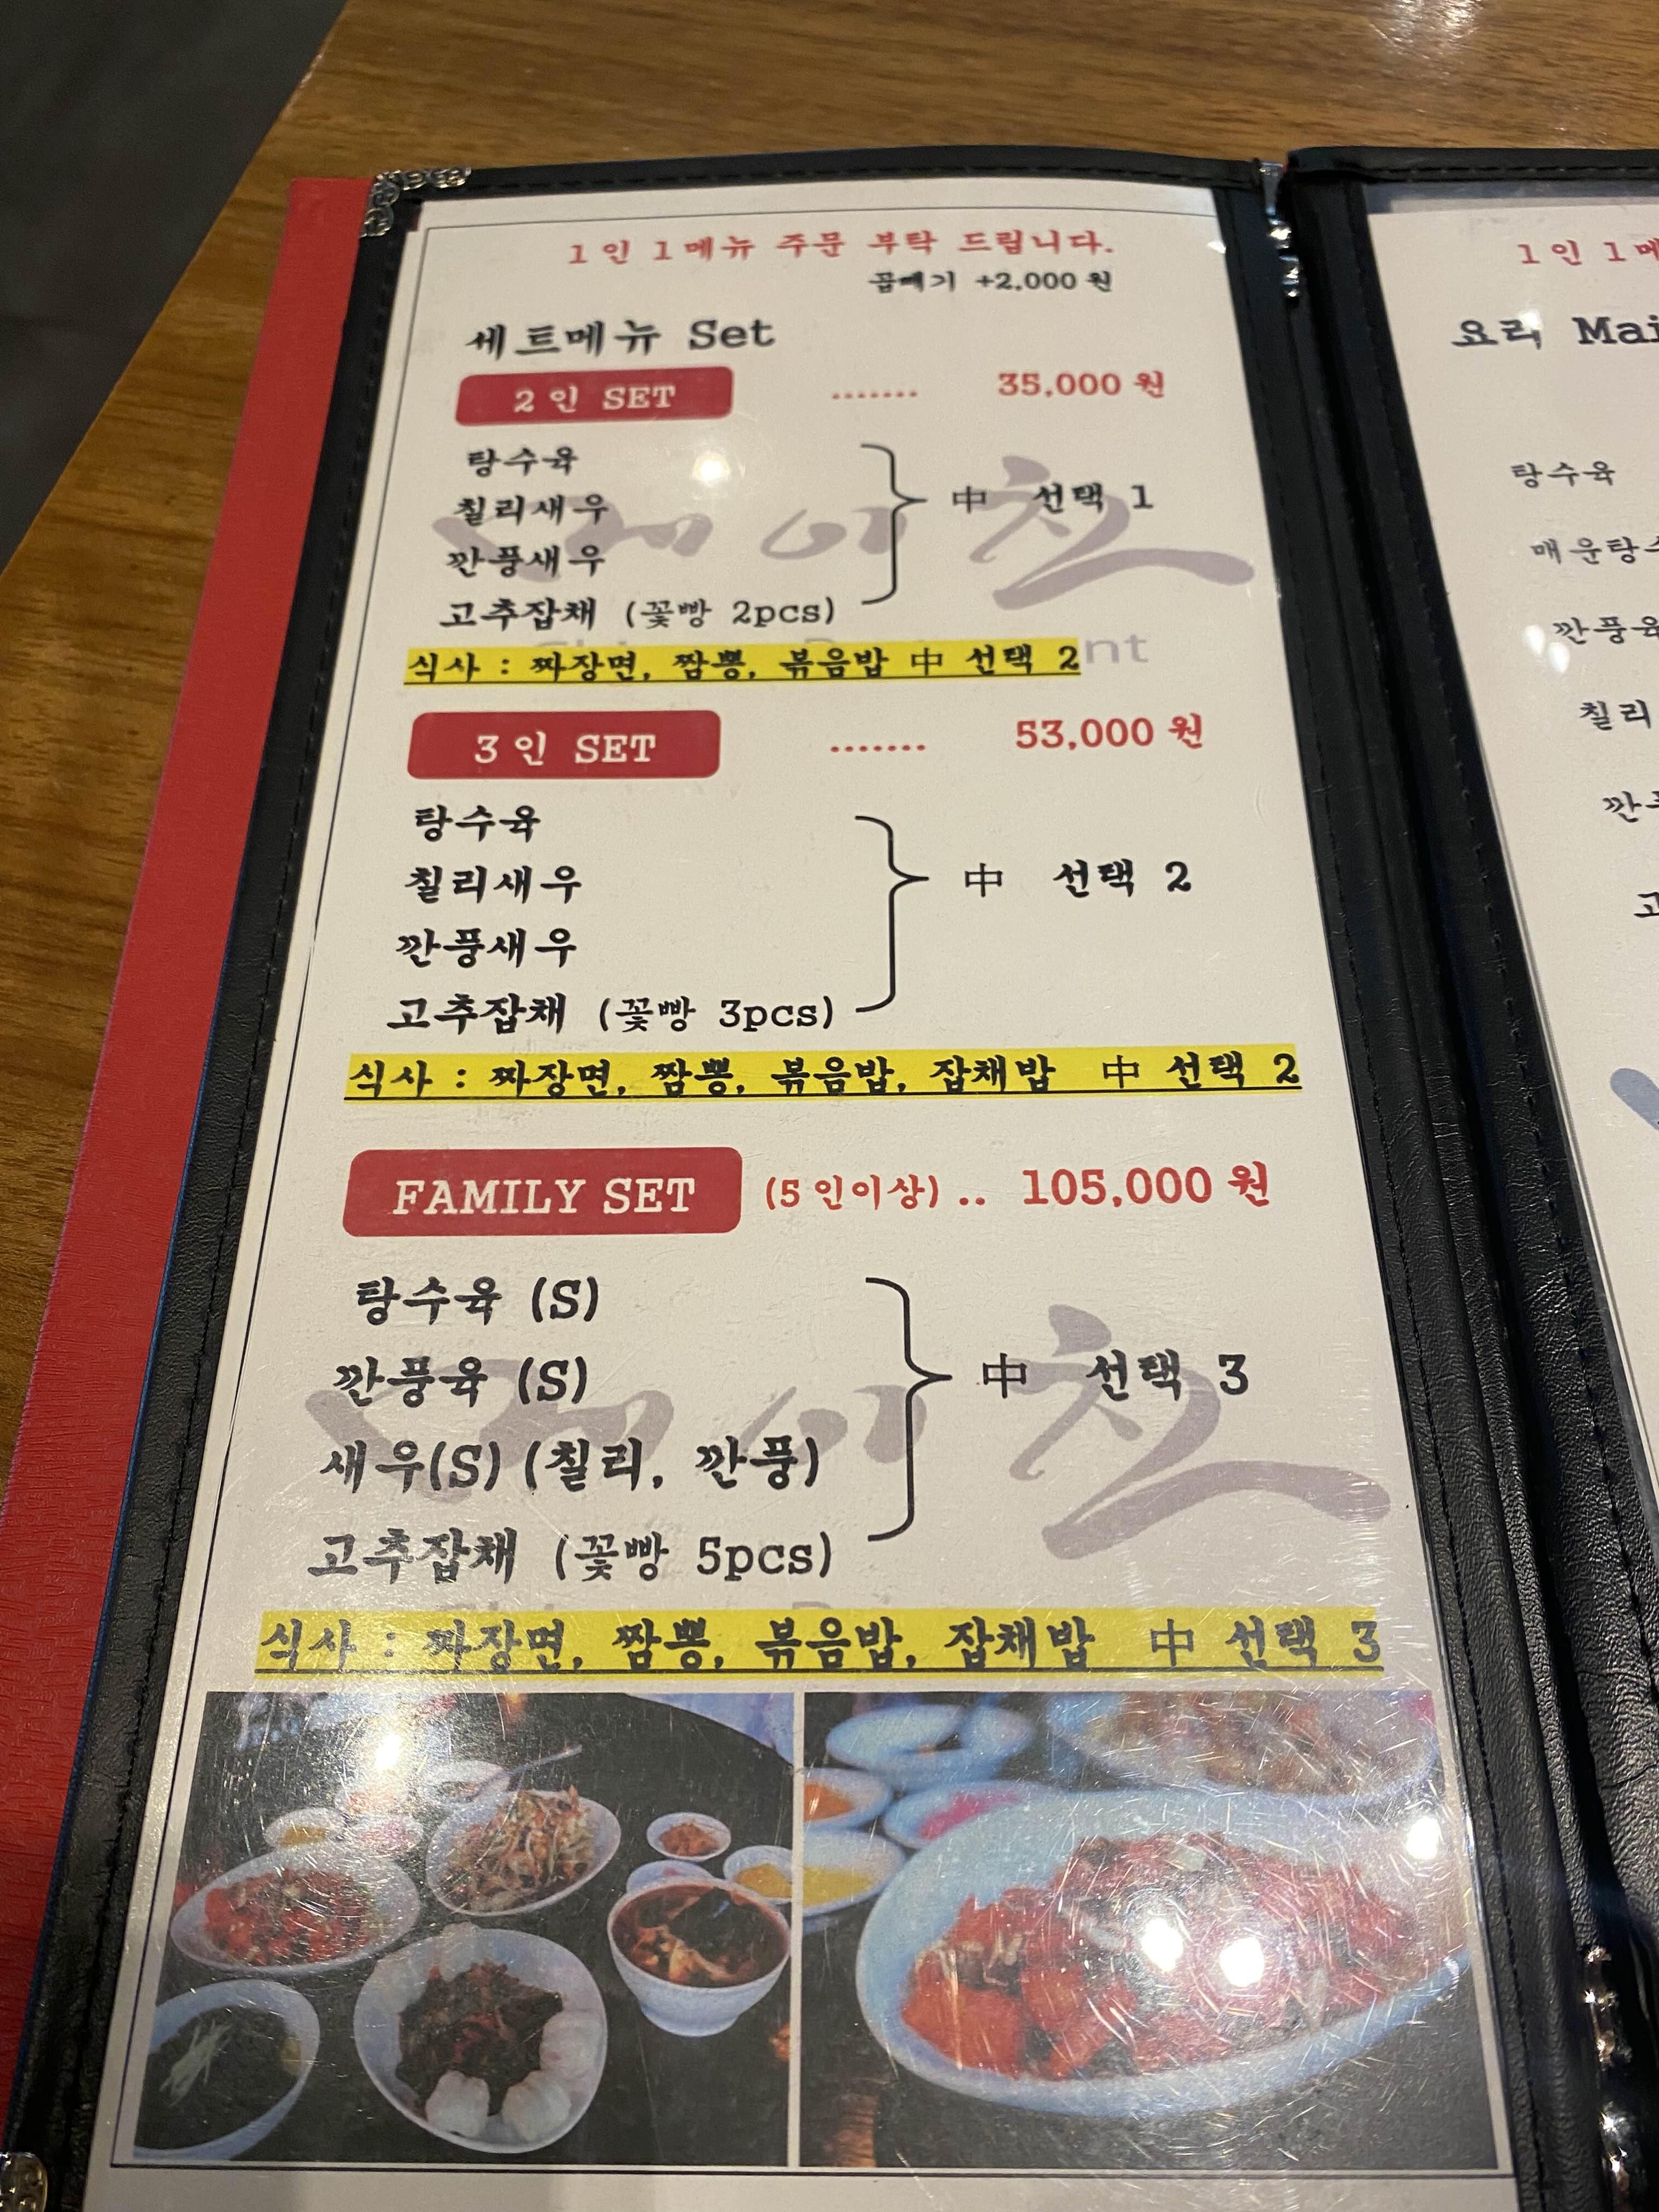 1인 1메뉴 주문 부탁 드립니다.
곱빼기 +2,000원
세트메뉴 Set
2인 SET ....... 35,000원
탕수육
칠리새우
깐풍새우
고추잡채 (꽃빵 2pcs)
中 선택 1
식사 : 짜장면, 짬뽕, 볶음밥 中 선택 2
3인 SET ....... 53,000원
탕수육
칠리새우
깐풍새우
고추잡채 (꽃빵 3pcs)
中 선택 2
식사 : 짜장면, 짬뽕, 볶음밥, 잡채밥 中 선택 2
FAMILY SET (5인이상) .. 105,000원
탕수육 (S)
깐풍육 (S)
새우(S) (칠리, 깐풍)
고추잡채 (꽃빵 5pcs)
中 선택 3
식사 : 짜장면, 짬뽕, 볶음밥, 잡채밥 中 선택 3
1인 1메
요리 Mai
탕수육
매운탕수
깐풍육
칠리
깐풍
고